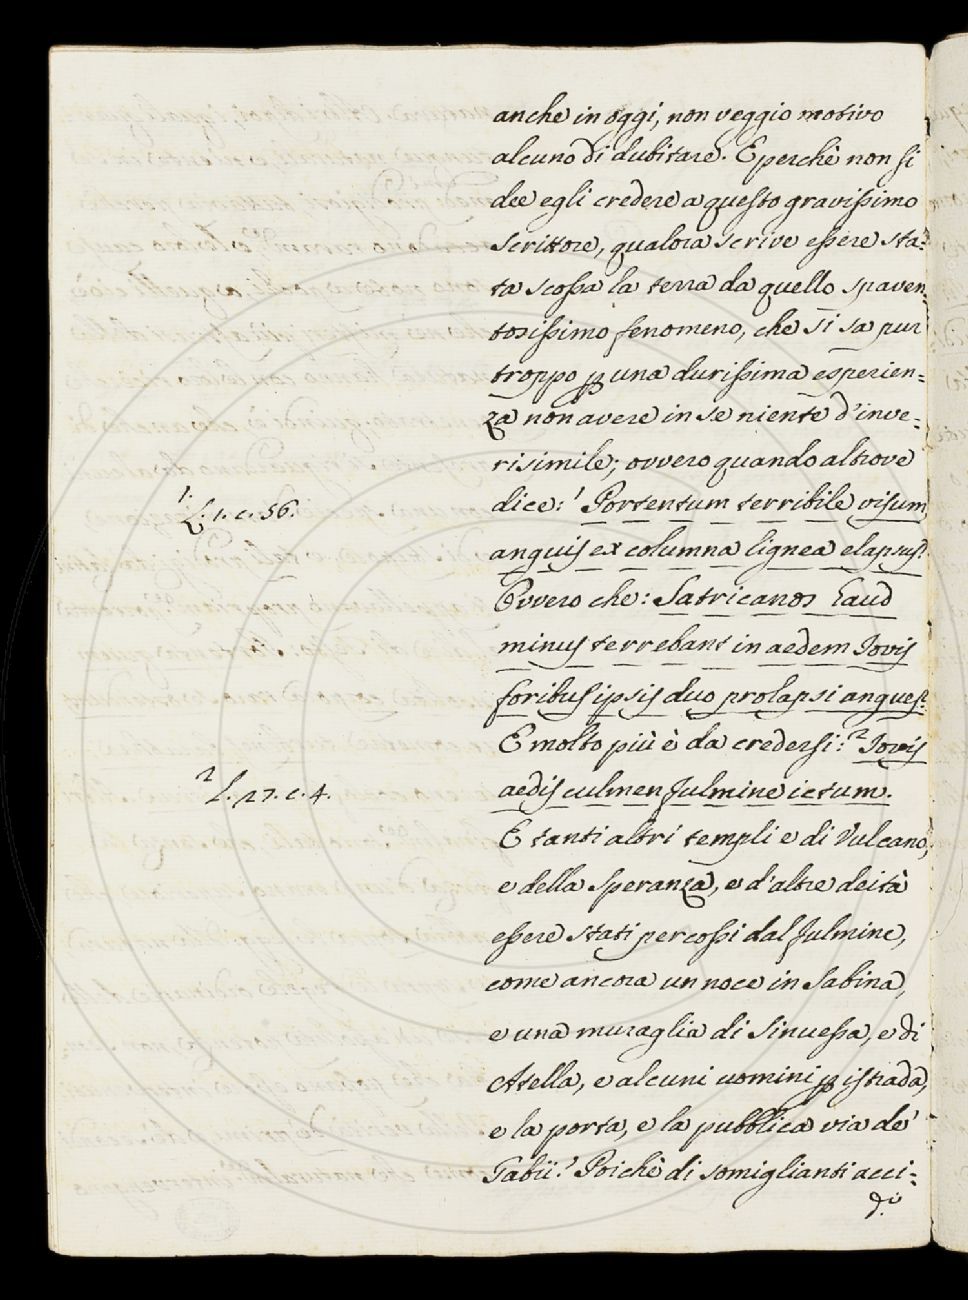 anche in oggi, non veggio motivo
alcuno di dubitare. E perchè non si
dee egli credere a questo gravissimo
scrittore, qualora scrive essere sta=
ta scossa la terra da quello spaven=
tosissimo fenomeno, che si sa pur
troppo ꝑ una durissima esperien=
za non avere in se niente d'inve=
risimile; ovvero quando altrove
dice: ¹ Portentum terribile visum
anguis ex columna lignea elapsus?
Ovvero che: Satricanos haud
minus terrebant in aedem Iovis
foribus ipsis duo prolapsi angues?
E molto più è da credersi: ² Iovis
aedis culmen fulmine ictum.
E tanti altri templi e di Vulcano,
e della Speranza, e d'altre deità
essere stati percossi dal fulmine,
come ancora un noce in Sabina,
e una muraglia di Sinuessa, e di
Atella, e alcuni uomini ꝑ istrada,
e la porta, e la pubblica via de'
Gabii? Poichè di somiglianti acci=
d.ⁱ
1. L. 1. c. 56.
2 L. 27. c. 4.